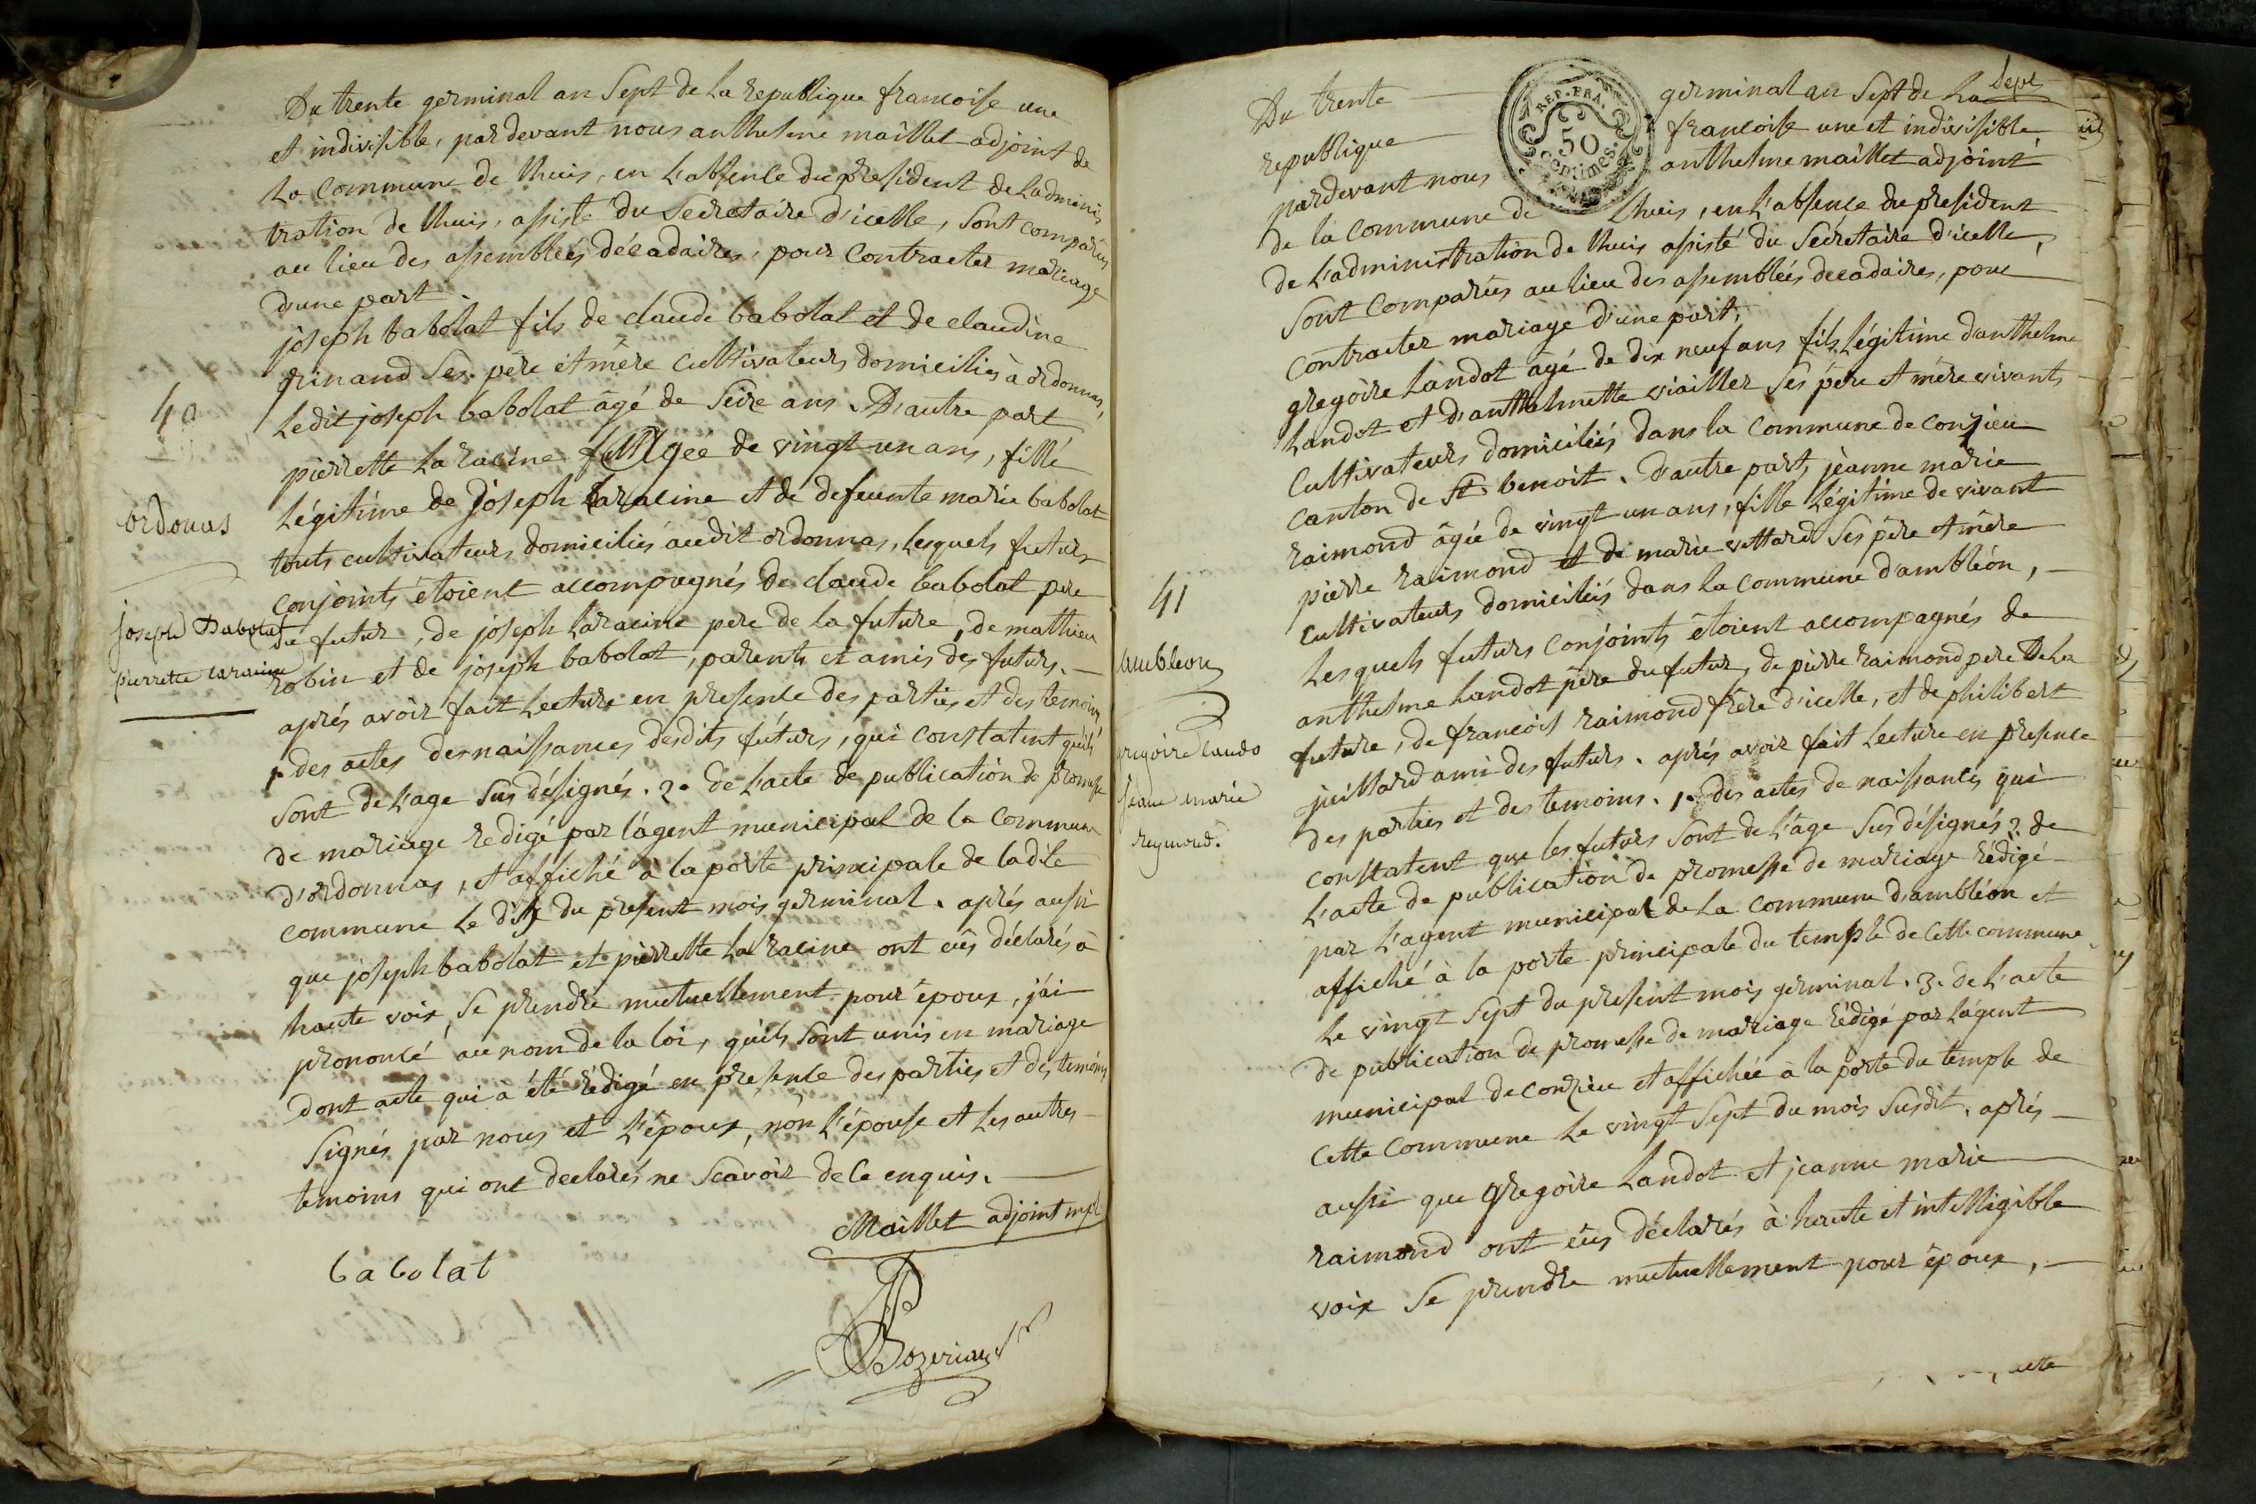 Du trente germinal an Sept de La republique francoise une
et indivisible, pardevant nous anthelme maillet adjoint de
La Commune de lhuis, en L'absence du president de Ladminis
tration de lhuis, assisté du Secretaire d'icelle, Sont comparus
au lieu des assemblées décadaires, pour Contracter mariage
d'une part
joseph babolat fils de claude babolat et de claudine
grinand Ses père et mère Cultivateurs domiciliés à ordonnas,
Ledit joseph babolat âgé de Seize ans. D'autre part
pierrette Laracine Agée de vingt un ans, fille
Légitime de Joseph Laracine et de defeunte marie babolat
touts cultivateurs domiciliés audit ordonnas, Lesquels futurs
Conjoints étoient accompagnés de claude babolat pere
du futur, de joseph Laracine pere de La future, de mathieu
robin et de joseph babolat, parents et amis des futurs.
aprés avoir fait Lecture en presence des parties et des temoins
1° des actes de naissances desdits futurs, qui constatent qu'ils
Sont de L'age Sus désignés. 2° de L'acte de publication de promesse
de mariage redigé par l'agent municipal de la Commune
d'ordonnas, et affiché à la porte principale de ladite
commune Le dix du present mois germinal. aprés aussi
que joseph babolat et pierrette La racine ont eûs déclarés à
haute voix, Se prendre mutuellement pour époux, j'ai
prononcé au nom de la loi, qu'ils Sont unis en mariage
dont acte qui a été rédigé en presence des parties et des temoins
Signés par nous et L'époux, non L'épouse et Les autres
temoins qui ont declarés ne Scavoir de ce enquis.
Maillet adjoint mpl
babolat
Bozerian
40
ordonas
Joseph Babolat
pierrette Laracine
Sept
Du trente germinal an Sept de La
republique francoise une et indivisible
pardevant nous anthelme maillet adjoint
de la Commune de Lhuis, en L'absence du president
de L'administration de lhuis assisté du Secrétaire d'icelle,
Sont Comparus au lieu des assemblées decadaires, pour
Contracter mariage d'une part,
gregoire Landot âgé de dix neuf ans fils Légitime danthelme
Landot et d'anthelmette viailler Ses père et mère vivants
Cultivateurs domiciliés dans la Commune de Conzieu
Canton de St benoit. D'autre part, jeanne marie
raimond âgée de vingt un ans, fille Légitime de vivant
pierre raimond et de marie vettard Ses père et mère
Cultivateurs domiciliés dans la commune d'ambléon,
Lesquels futurs Conjoints étoient accompagnés de
anthelme Landot père du futur, de pierre raimond pere De La
future, de francois raimond frère d'icelle, et de philibert
juillard ami des futurs. aprés avoir fait Lecture en presence
des parties et des temoins. 1° des actes de naissances qui
constatent que les futurs Sont de L'âge Sus désignés 2. de
L'acte de publication de promesse de mariage rédigé
par L'agent municipal de La commune d'ambléon et
affiché à la porte principale du temple de Cette commune
Le vingt Sept du present mois germinal. 3. de L'acte
de publication de promesse de mariage rédigé par l'agent
municipal de conzieu et affichée à la porte du temple de
Cette Commune Le vingt Sept du mois Susdit. aprés
aussi que Gregoire Landot et jeanne marie
raimond ont eûs déclarés à haute et intelligible
voix Se prendre mutuellement pour époux,
acte
41
ambleon
gregoire Lando
jeane marie
reymond.
REP. FRA.
50
centimes.